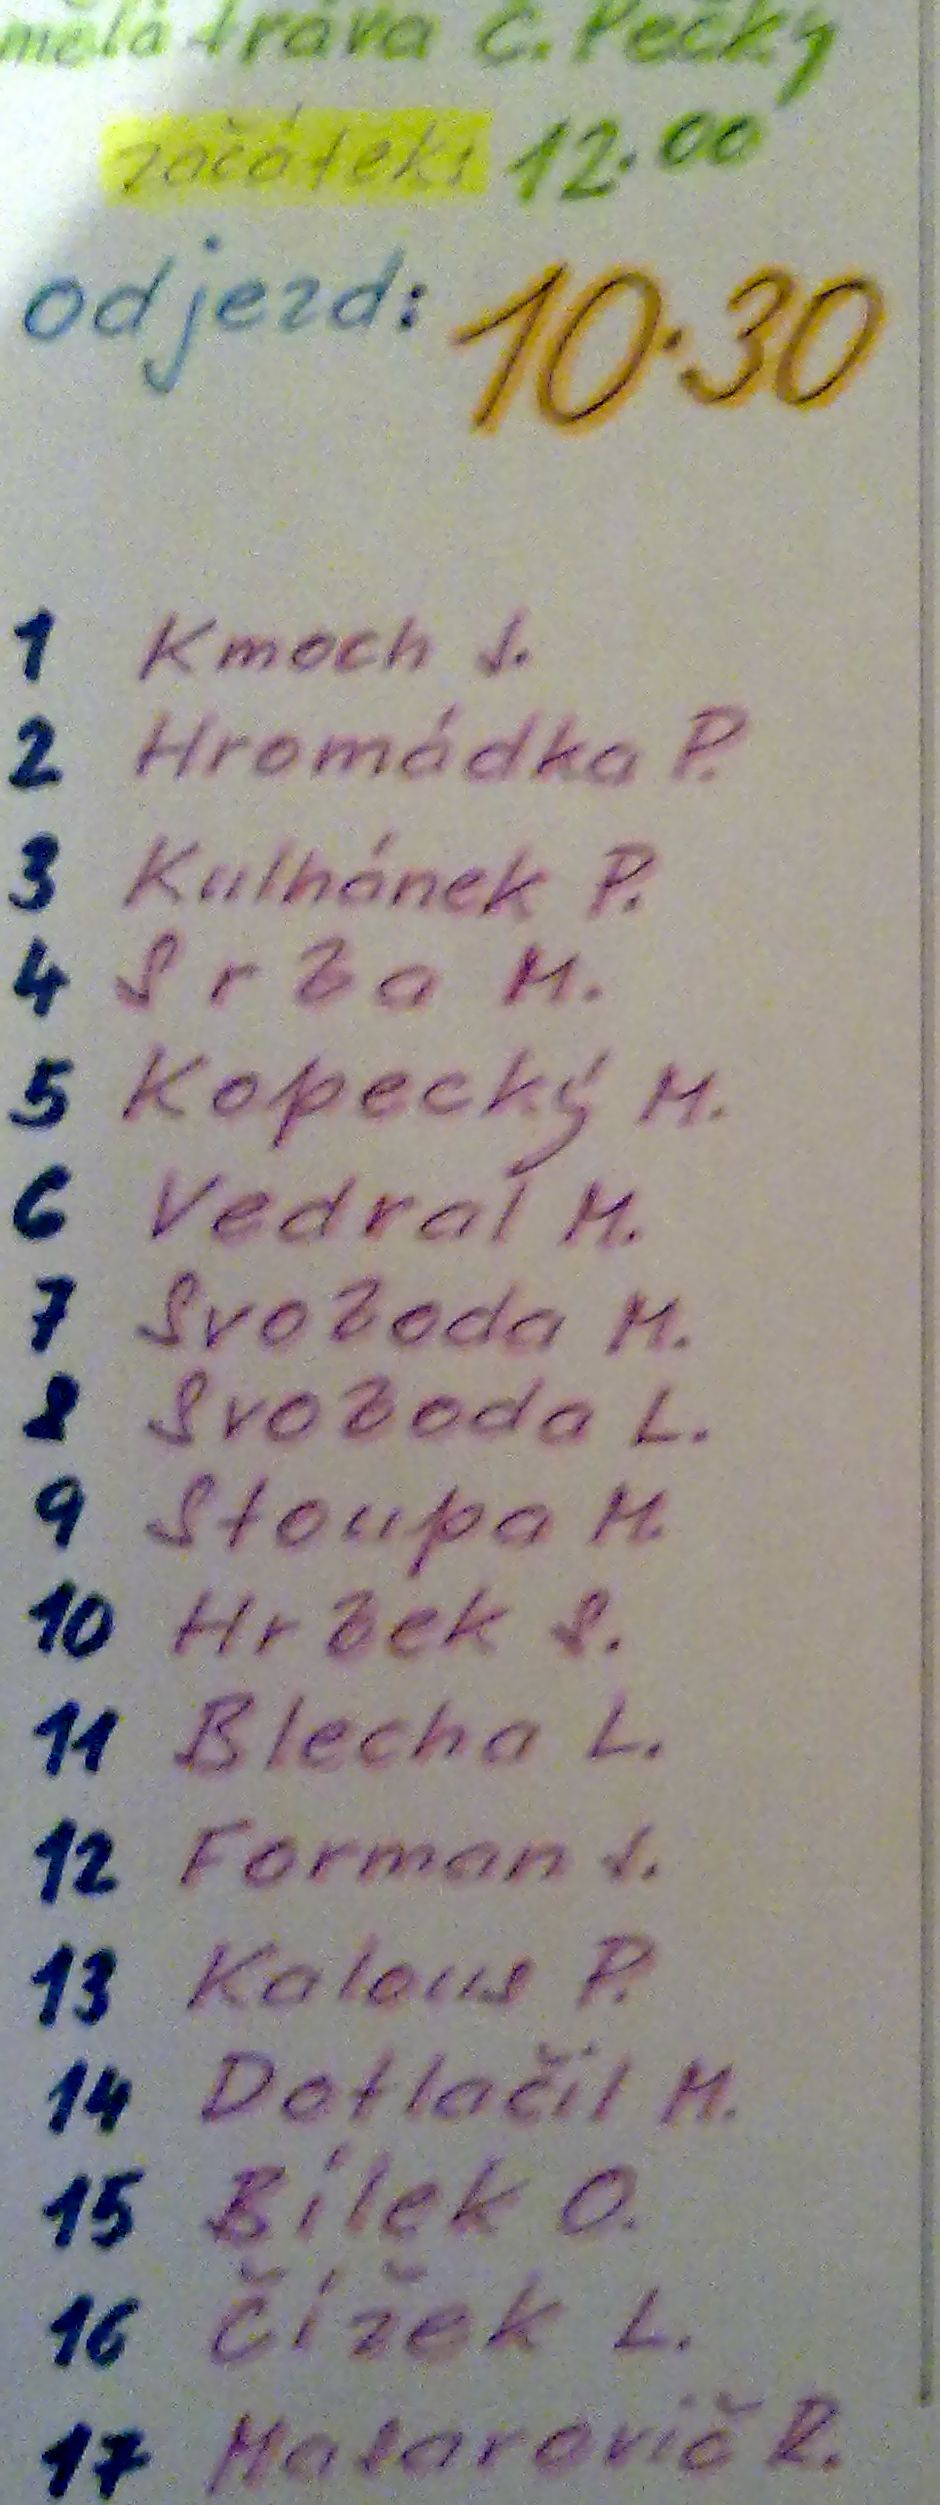 mělá tráva Č. Pečky
začátek: 12.00
odjezd: 10.30
1 Kmoch J.
2 Hromádka P.
3 Kulhánek P.
4 Srba M.
5 Kopecký M.
6 Vedral M.
7 Svoboda M.
8 Svoboda L.
9 Stoupa M.
10 Hrbek S.
11 Blecha L.
12 Forman J.
13 Kalous P.
14 Dotlačil M.
15 Bílek O.
16 Čížek L.
17 Masarovič R.